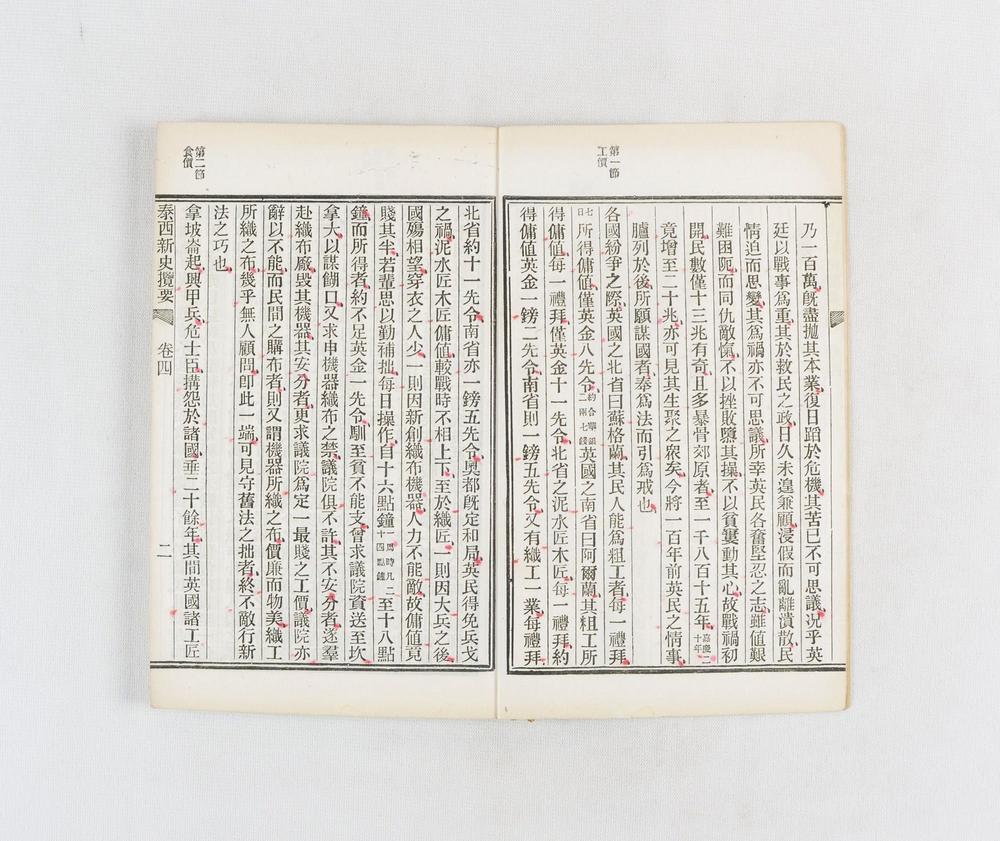 第一節
工價
乃一百萬旣盡拋其本業復日蹈於危機其苦已不可思議况乎英
廷以戰事爲重其於救民之政日久未遑兼顧浸假而亂離潰散民
情迫而思變其爲禍亦不可思議所幸英民各奮堅忍之志雖値艱
難困阨而同仇敵愾不以挫敗墮其操不以貧窶動其心故戰禍初
開民數僅十三兆有奇且多暴骨郊原者至一千八百十五年嘉慶二十年
竟增至二十兆亦可見其生聚之衆矣今將一百年前英民之情事
臚列於後所願謀國者奉爲法而引爲戒也
各國紛爭之際英國之北省曰蘇格蘭其民人能爲粗工者每一禮拜
七日所得傭値僅英金八先令約合華銀二兩七錢英國之南省曰阿爾蘭其粗工所
得傭値每一禮拜僅英金十一先令北省之泥水匠木匠每一禮拜約
得傭値英金一鎊二先令南省則一鎊五先令又有織工一業每禮拜
第二節
食價
北省約十一先令南省亦一鎊五先令奧都旣定和局英民得免兵戈
之禍泥水匠木匠傭値較戰時不相上下至於織匠一則因大兵之後
國殤相望穿衣之人少一則因新創織布機器人力不能敵故傭値竟
賤其半若輩思以勤補拙每日操作自十六點鐘一周時凡二十四點鐘至十八點
鐘而所得者約不足英金一先令馴至貧不能支曾求議院資送至坎
拿大以謀餬口又求申機器織布之禁議院俱不許其不安分者遂羣
赴織布廠毀其機器其安分者更求議院爲定一最賤之工價議院亦
辭以不能而民間之購布者則又謂機器所織之布價廉而物美織工
所織之布幾乎無人顧問卽此一端可見守舊法之拙者終不敵行新
法之巧也
拿坡崙起興甲兵危士臣搆怨於諸國垂二十餘年其間英國諸工匠
泰西新史攬要 卷四 二